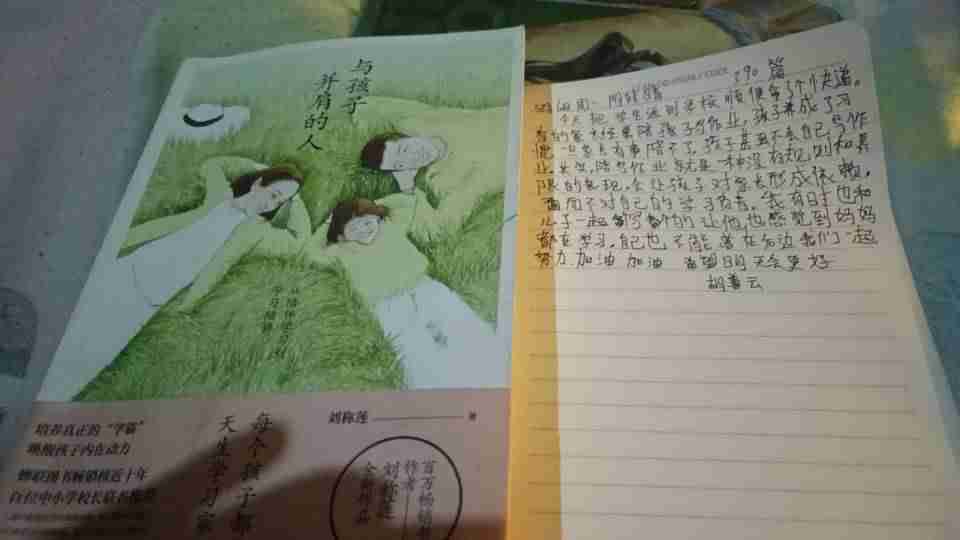 与孩子
并肩的人
从陪伴学习到
学习陪伴
刘称莲 著
每个孩子都
天生学习家
培养真正的“学霸”
唤醒孩子内在动力
百万畅销书
作者
刘称莲
全新作品
290篇
周一 阴转晴
今天把学生送到学校顺便拿了个快递。
有的家长经常陪孩子写作业，孩子养成了习
惯 一旦家长有事陪不了，孩子甚至不会自己写作
业。其实，陪写作业就是一种没有规则和界
限的表现，会让孩子对家长形成依赖，
而不对自己的学习负责。我有时也和
儿子一起写 让他也感觉到妈妈
都在学习，自己也不能 我们一起
努力 加油 加油 希望明天会更好
胡善云